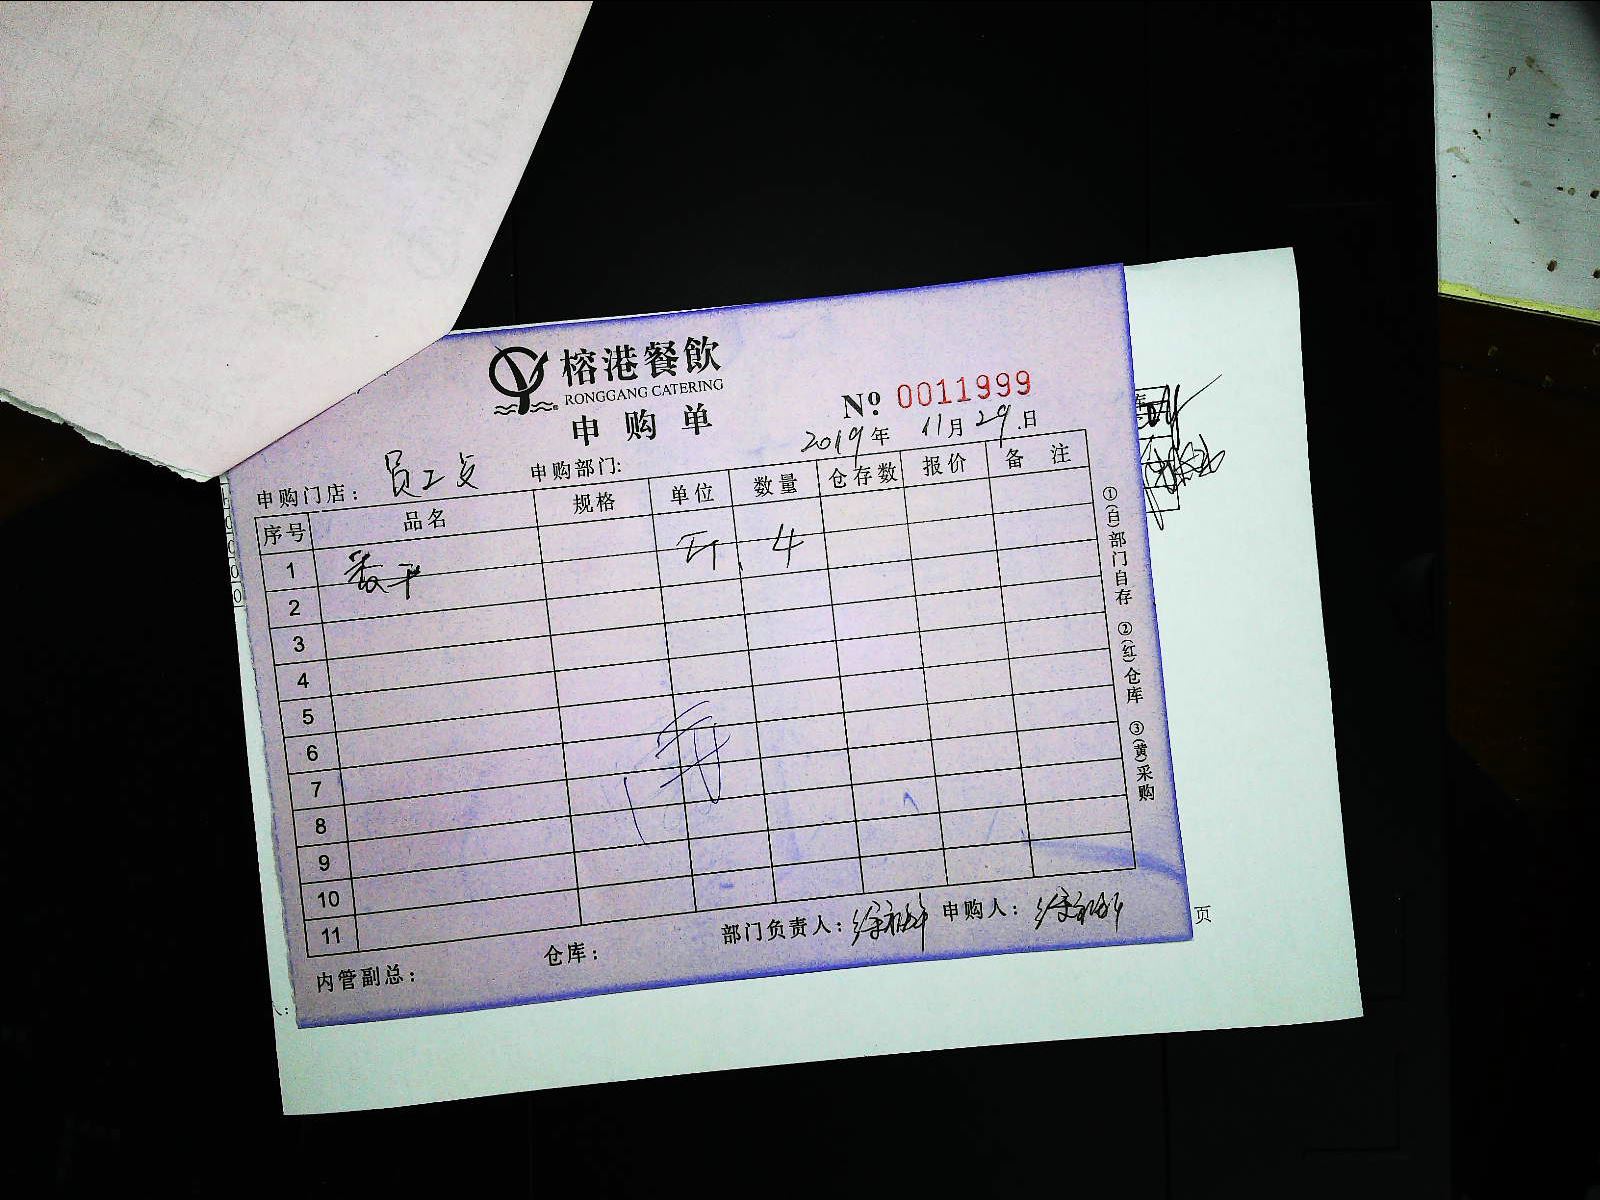 榕港餐飲
RONGGANG CATERING
申购单
№ 0011999
2019年 11月 29日
申购门店： 员工 申购部门:
序号 品名 规格 单位 数量 仓存数 报价 备 注
1 斤 4
2
3
4
5
6
7
8
9
10
11
①(白)部门自存 ②(红)仓库 ③(黄)采购
内管副总： 仓库： 部门负责人： 申购人：
页